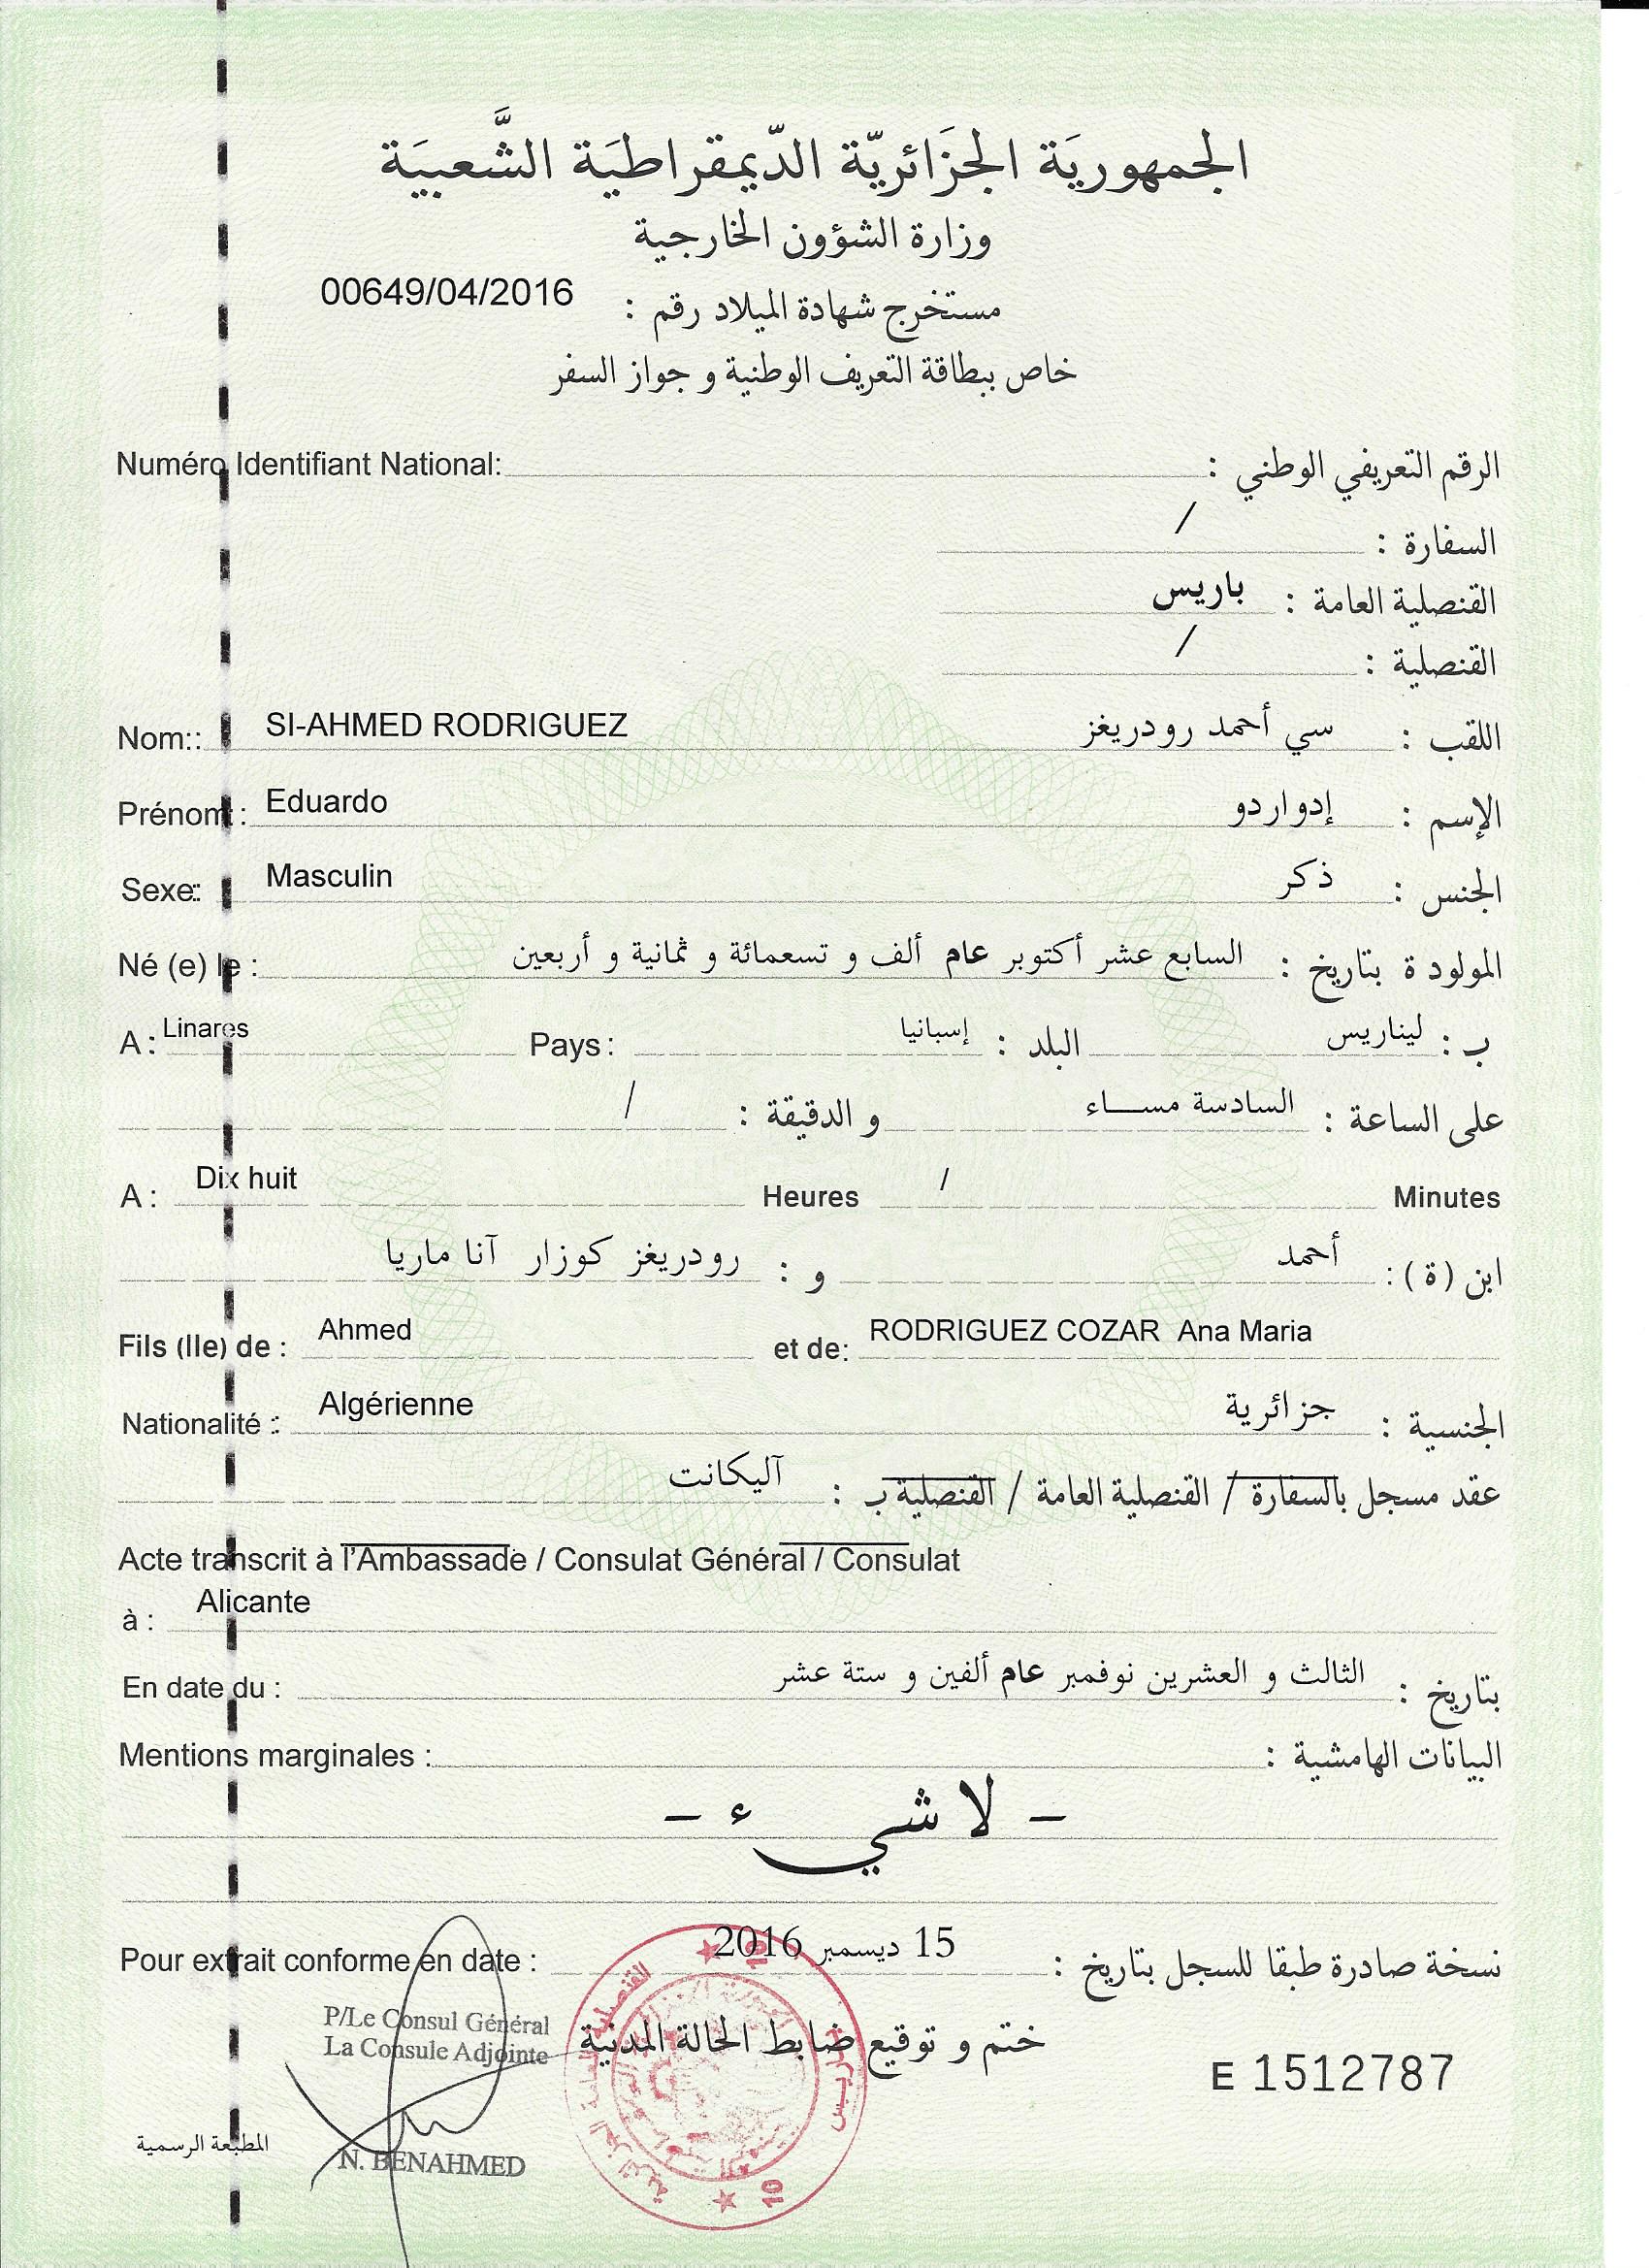 الجمهوريَة الجزَائريّة الدّيمقراطيَة الشَّعبيَة
وزارة الشؤون الخارجية
مستخرج شهادة الميلاد رقم : 00649/04/2016
خاص ببطاقة التعريف الوطنية و جواز السفر
Numéro Identifiant National: الرقم التعريفي الوطني :
السفارة : /
القنصلية العامة : باريس
القنصلية : /
Nom:: SI-AHMED RODRIGUEZ اللقب : سي أحمد رودريغز
Prénom : Eduardo الإسم : إدواردو
Sexe:: Masculin الجنس : ذكر
Né (e) le : المولود ة بتاريخ : السابع عشر أكتوبر عام ألف و تسعمائة و ثمانية و أربعين
A : Linares Pays : البلد : إسبانيا ب : ليناريس
على الساعة : السادسة مســاء و الدقيقة : /
A : Dix huit Heures / Minutes
ابن (ة) : أحمد و : رودريغز كوزار آنا ماريا
Fils (lle) de : Ahmed et de: RODRIGUEZ COZAR Ana Maria
Nationalité :: Algérienne الجنسية : جزائرية
عقد مسجل بالسفارة / القنصلية العامة / القنصلية ب : آليكانت
Acte transcrit à l'Ambassade / Consulat Général / Consulat
à : Alicante
En date du : بتاريخ : الثالث و العشرين نوفمبر عام ألفين و ستة عشر
Mentions marginales : البيانات الهامشية :
- لا شيء -
Pour extrait conforme en date : نسخة صادرة طبقا للسجل بتاريخ : 15 ديسمبر 2016
P/Le Consul Général
La Consule Adjointe
ختم و توقيع ضابط الحالة المدنية
E 1512787
المطبعة الرسمية
N. BENAHMED